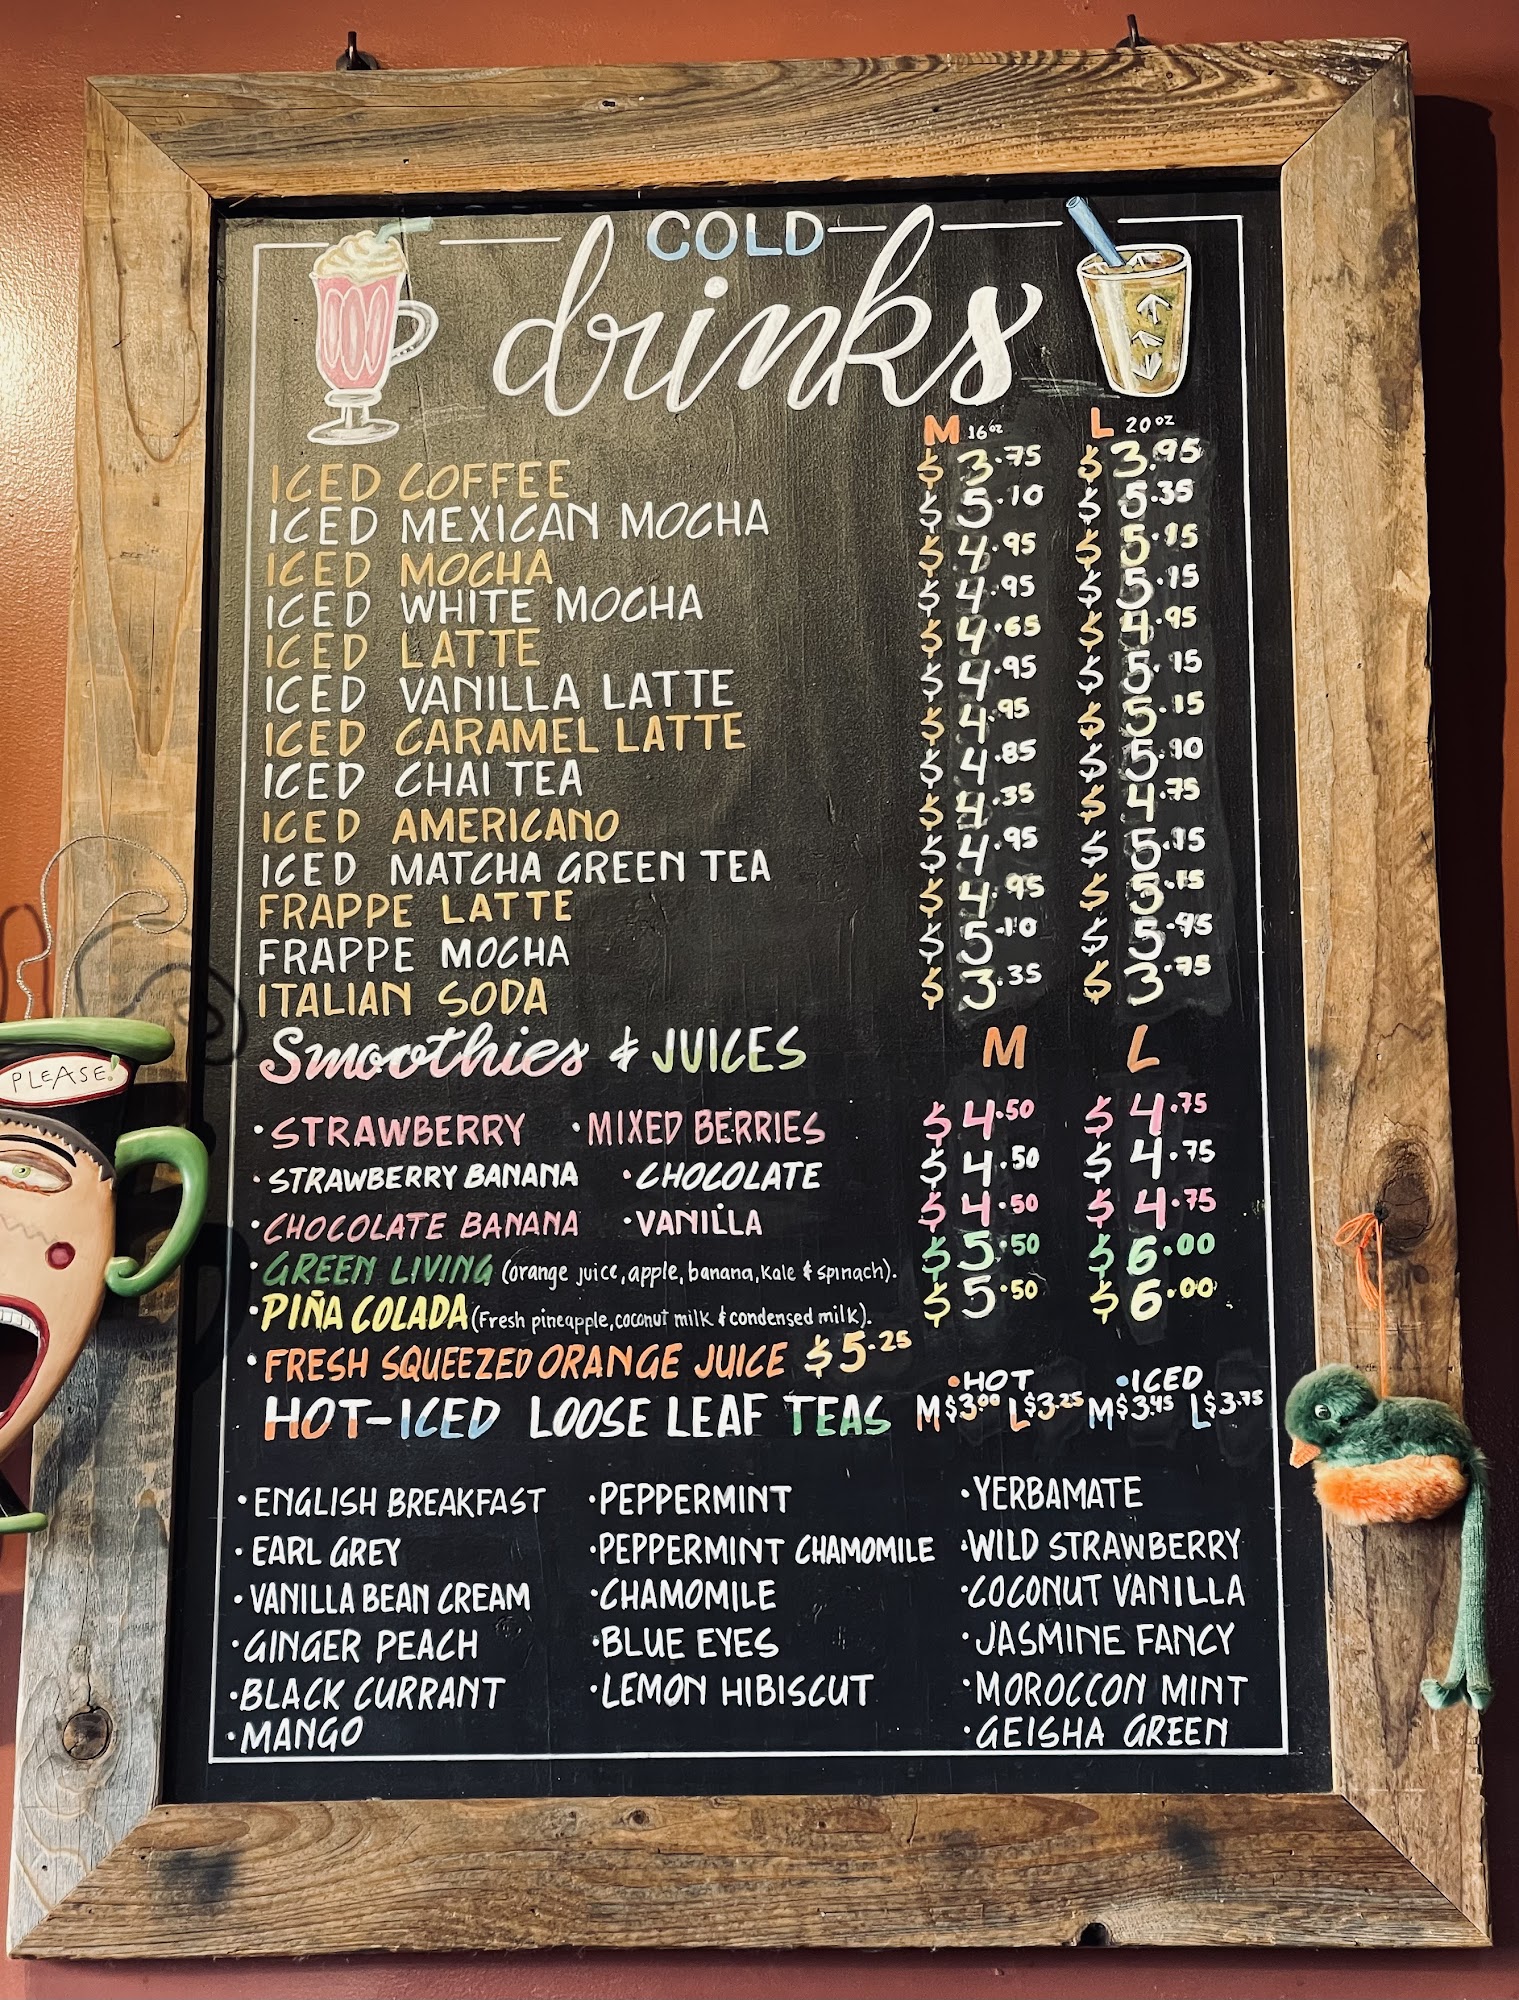 COLD
drinks
M 16oz L 20oz
ICED COFFEE $3.75 $3.95
ICED MEXICAN MOCHA $5.10 $5.35
ICED MOCHA $4.95 $5.15
ICED WHITE MOCHA $4.95 $5.15
ICED LATTE $4.65 $4.95
ICED VANILLA LATTE $4.95 $5.15
ICED CARAMEL LATTE $4.95 $5.15
ICED CHAI TEA $4.85 $5.10
ICED AMERICANO $4.35 $4.75
ICED MATCHA GREEN TEA $4.95 $5.15
FRAPPE LATTE $4.95 $5.15
FRAPPE MOCHA $5.10
ITALIAN SODA $3.35 $3.75
Smoothies & JUICES M L
•STRAWBERRY •MIXED BERRIES $4.50 $4.75
•STRAWBERRY BANANA •CHOCOLATE $4.50 $4.75
•CHOCOLATE BANANA •VANILLA $4.50 $4.75
•GREEN LIVING (orange juice, apple, banana, kale & spinach). $5.50 $6.00
•PIÑA COLADA (Fresh pineapple, coconut milk & condensed milk). $5.50 $6.00
•FRESH SQUEEZED ORANGE JUICE $5.25
•HOT •ICED
HOT-ICED LOOSE LEAF TEAS M$3.00 L$3.25 M$3.45 L$3.75
•ENGLISH BREAKFAST •PEPPERMINT •YERBAMATE
•EARL GREY •PEPPERMINT CHAMOMILE •WILD STRAWBERRY
•VANILLA BEAN CREAM •CHAMOMILE •COCONUT VANILLA
•GINGER PEACH •BLUE EYES •JASMINE FANCY
•BLACK CURRANT •LEMON HIBISCUT •MOROCCON MINT
•MANGO •GEISHA GREEN
PLEASE!